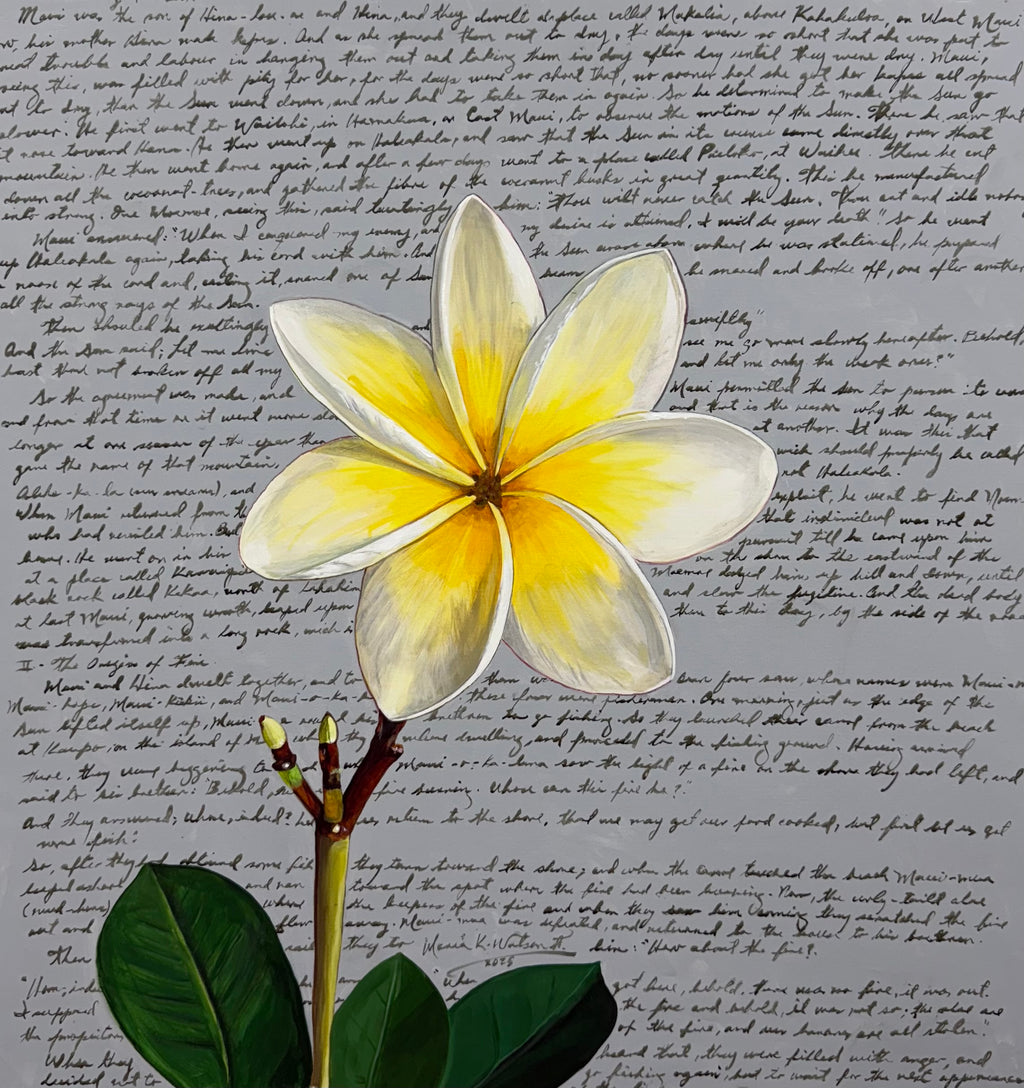 Maui was the son of Hina-lau-ae and Hina, and they dwelt at place called Makalia, above Kahakuloa, on West Maui
his mother Hina made kapas. And as she spread them out to dry, the days were so short that she was put to
great trouble and labour in hanging them out and taking them in day after day until they were dry. Maui,
seeing this, was filled with pity for her, for the days were so short that, no sooner had she got her kapas all spread
out to dry, than the Sun went down, and she had to take them in again. So he determined to make the Sun go
slower. He first went to Wailohi, in Hamakua, on East Maui, to observe the motions of the Sun. There he saw that
it rose toward Hana. He then went up on Haleakala, and saw that the Sun in its course came directly over that
mountain. He then went home again, and after a few days went to a place called Paeloko, at Waihee. There he cut
down all the cocoanut-trees, and gathered the fibre of the cocoanut husks in great quantity. This he manufactured
into strong. One Moemoe, seeing this, said tauntingly him: Thou wilt never catch the Sun. Thou art and idle
Maui answered: "When I conquered my enemy, and my desire is attained, I will be your death" So he went
up Haleakala again, taking his cord with him. And the Sun arose above where he was stationed, he prepared
a noose of the cord and, casting it, snared one of Sun beam he snared and broke off, one after another
all the strong rays of the Sun.
Then shouted he exultingly and swiftly"
And the Sun said; Let me live see me go more slowly hereafter. Behold,
hast thou not broken off all my and left me only the weak ones?"
So the agreement was made, and Maui permitted the sun to pursue its
and from that time on it went more and that is the reason why the days are
longer at one season of the year at another. It was this that
gave the name of that mountain, wich should properly be called
Alehe-ka-la (sun snares), and not Haleakala.
When Maui returned from exploit, he went to find
who had reviled him. that individual was not at
home. He went on in his pursuit till he came upon him
at a place called on the shore to the eastward of the
black rock called Kekaa, north of Lahaina Moemoe dodged him, up hill and down, until
at last Maui, growing wroth, leaped upon and slew the fugitive. And the dead body
was transformed into a long rock, wich is there to this day, by the side of the road
II - The Origin of Fire.
Maui and Hina dwelt together, and to them were four sons, whose names were
Maui-hope, Maui-kiikii, and Maui-o-ka- these four were fishermen. One morning, just as the edge of the
Sun lifted itself up, Maui brethren to go fishing. So they launched their canoe from the beach
at Kaupo, on the island of they dwelling, and proceeded to the fishing ground. Having arrived
there, they were beginning to Maui-o-ka-lana saw the light of a fire on the shore they had left, and
said to his bretren: "Behold, fire burning. Whose can this fire be?"
And they answered; whose, indeed? return to the shore, that we may get our food cooked, but first let us get
some fish".
So, after they had obtained some fish they turn toward the shore; and when the canoe touched the beach Maui-mua
leaped ashore and ran toward the spot where the fire had been burning. Now, the curly-tailed alae
(mud-hens) were the keepers of the fire and when they saw him coming they scratched the fire
out and flew away. Maui-mua was defeated, and returned to the house to his brethren.
Then said they to him: "How about the fire?.
Maria K. Watson
2025
"How, indeed when got here, behold, there was no fire, it was out.
I supposed the fire and behold, it was not so; the alae are
the proprietors of the fire, and our bananas are all stolen."
When they heard that, they were filled with anger, and
decided not to go fishing again, but to wait for the next appearance